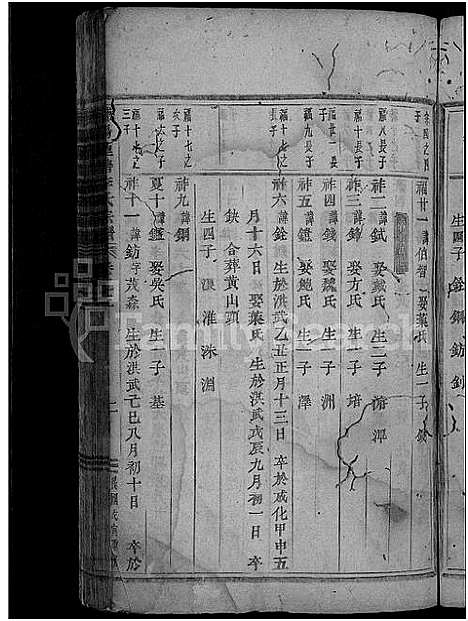 生四子 銓 鋼 鈁 釗
福廿一 諱伯智 娶葉氏 生一子
祚一 諱鉽 娶戴氏 生二子 潭
福八長子
祚三 諱鋒 娶方氏 生一子 培
福十長子
祚四 諱錢 娶魏氏 生一子 洲
福九長子
祚五 諱鐙 娶鮑氏 生一子 澤
福十七之長子
祚六 諱銓 生於洪武乙丑正月十三日 卒於成化甲申五
月十六日 娶葉氏 生於洪武戊辰九月初一日 卒
缺 合葬黃山頭
生四子 淮 洙 淵
福十七之次子
祚九 諱鋼
福六之子
夏十 諱鑑 娶吳氏 生一子 基
福十七之三子
祚十一 諱鈁 字茂森 生於洪武己巳八月初十日 卒於
FamilySearch